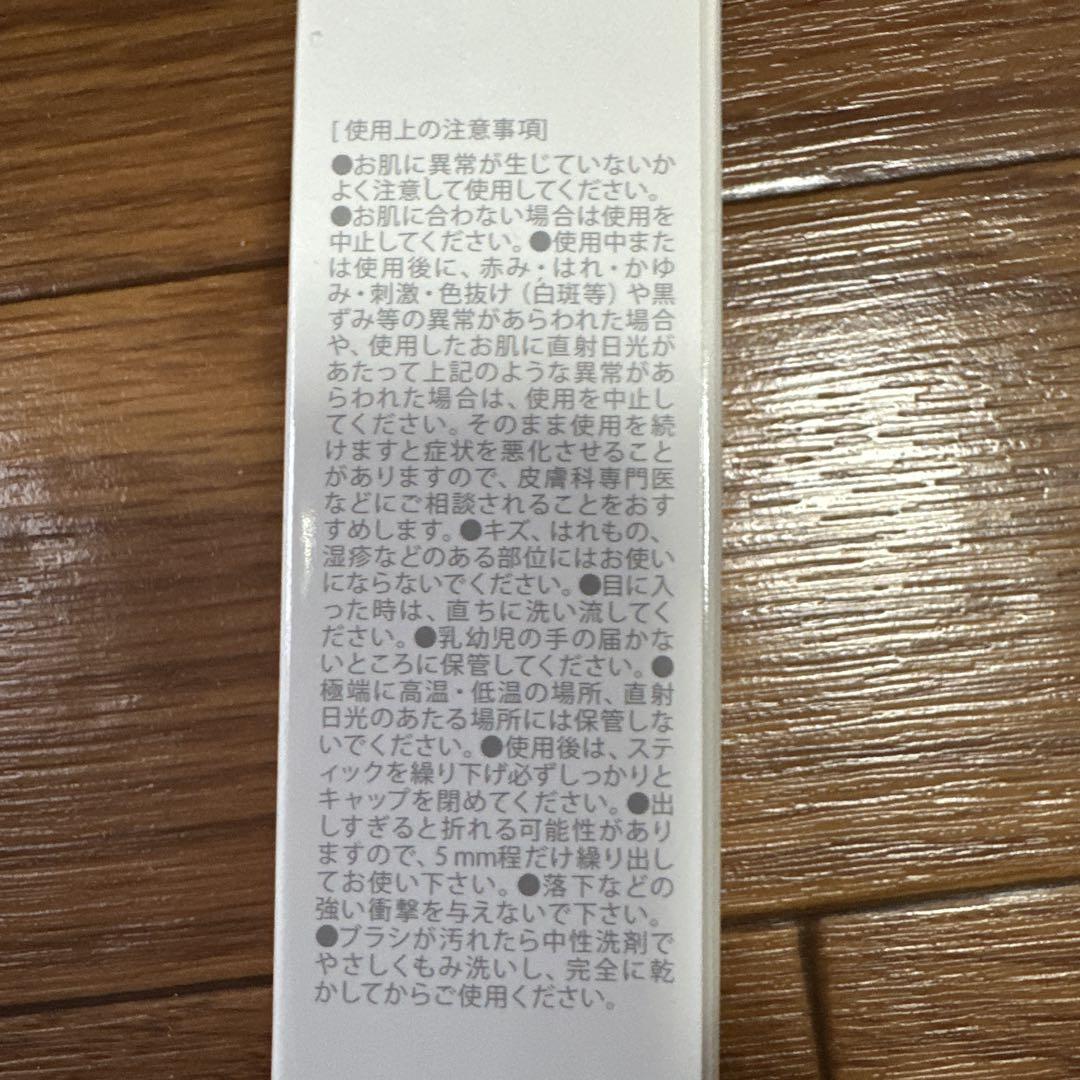 [使用上の注意事項]
●お肌に異常が生じていないか
よく注意して使用してください。
●お肌に合わない場合は使用を
中止してください。●使用中また
は使用後に、赤み・はれ・かゆ
み・刺激・色抜け（白斑等）や黒
ずみ等の異常があらわれた場合
や、使用したお肌に直射日光が
あたって上記のような異常があ
らわれた場合は、使用を中止し
てください。そのまま使用を続
けますと症状を悪化させること
がありますので、皮膚科専門医
などにご相談されることをおす
すめします。●キズ、はれもの、
湿疹などのある部位にはお使い
にならないでください。●目に入
った時は、直ちに洗い流してく
ださい。●乳幼児の手の届かな
いところに保管してください。●
極端に高温・低温の場所、直射
日光のあたる場所には保管しな
いでください。●使用後は、ステ
ィックを繰り下げ必ずしっかりと
キャップを閉めてください。●出
しすぎると折れる可能性があり
ますので、5 mm程だけ繰り出し
てお使い下さい。●落下などの
強い衝撃を与えないで下さい。
●ブラシが汚れたら中性洗剤で
やさしくもみ洗いし、完全に乾
かしてからご使用ください。